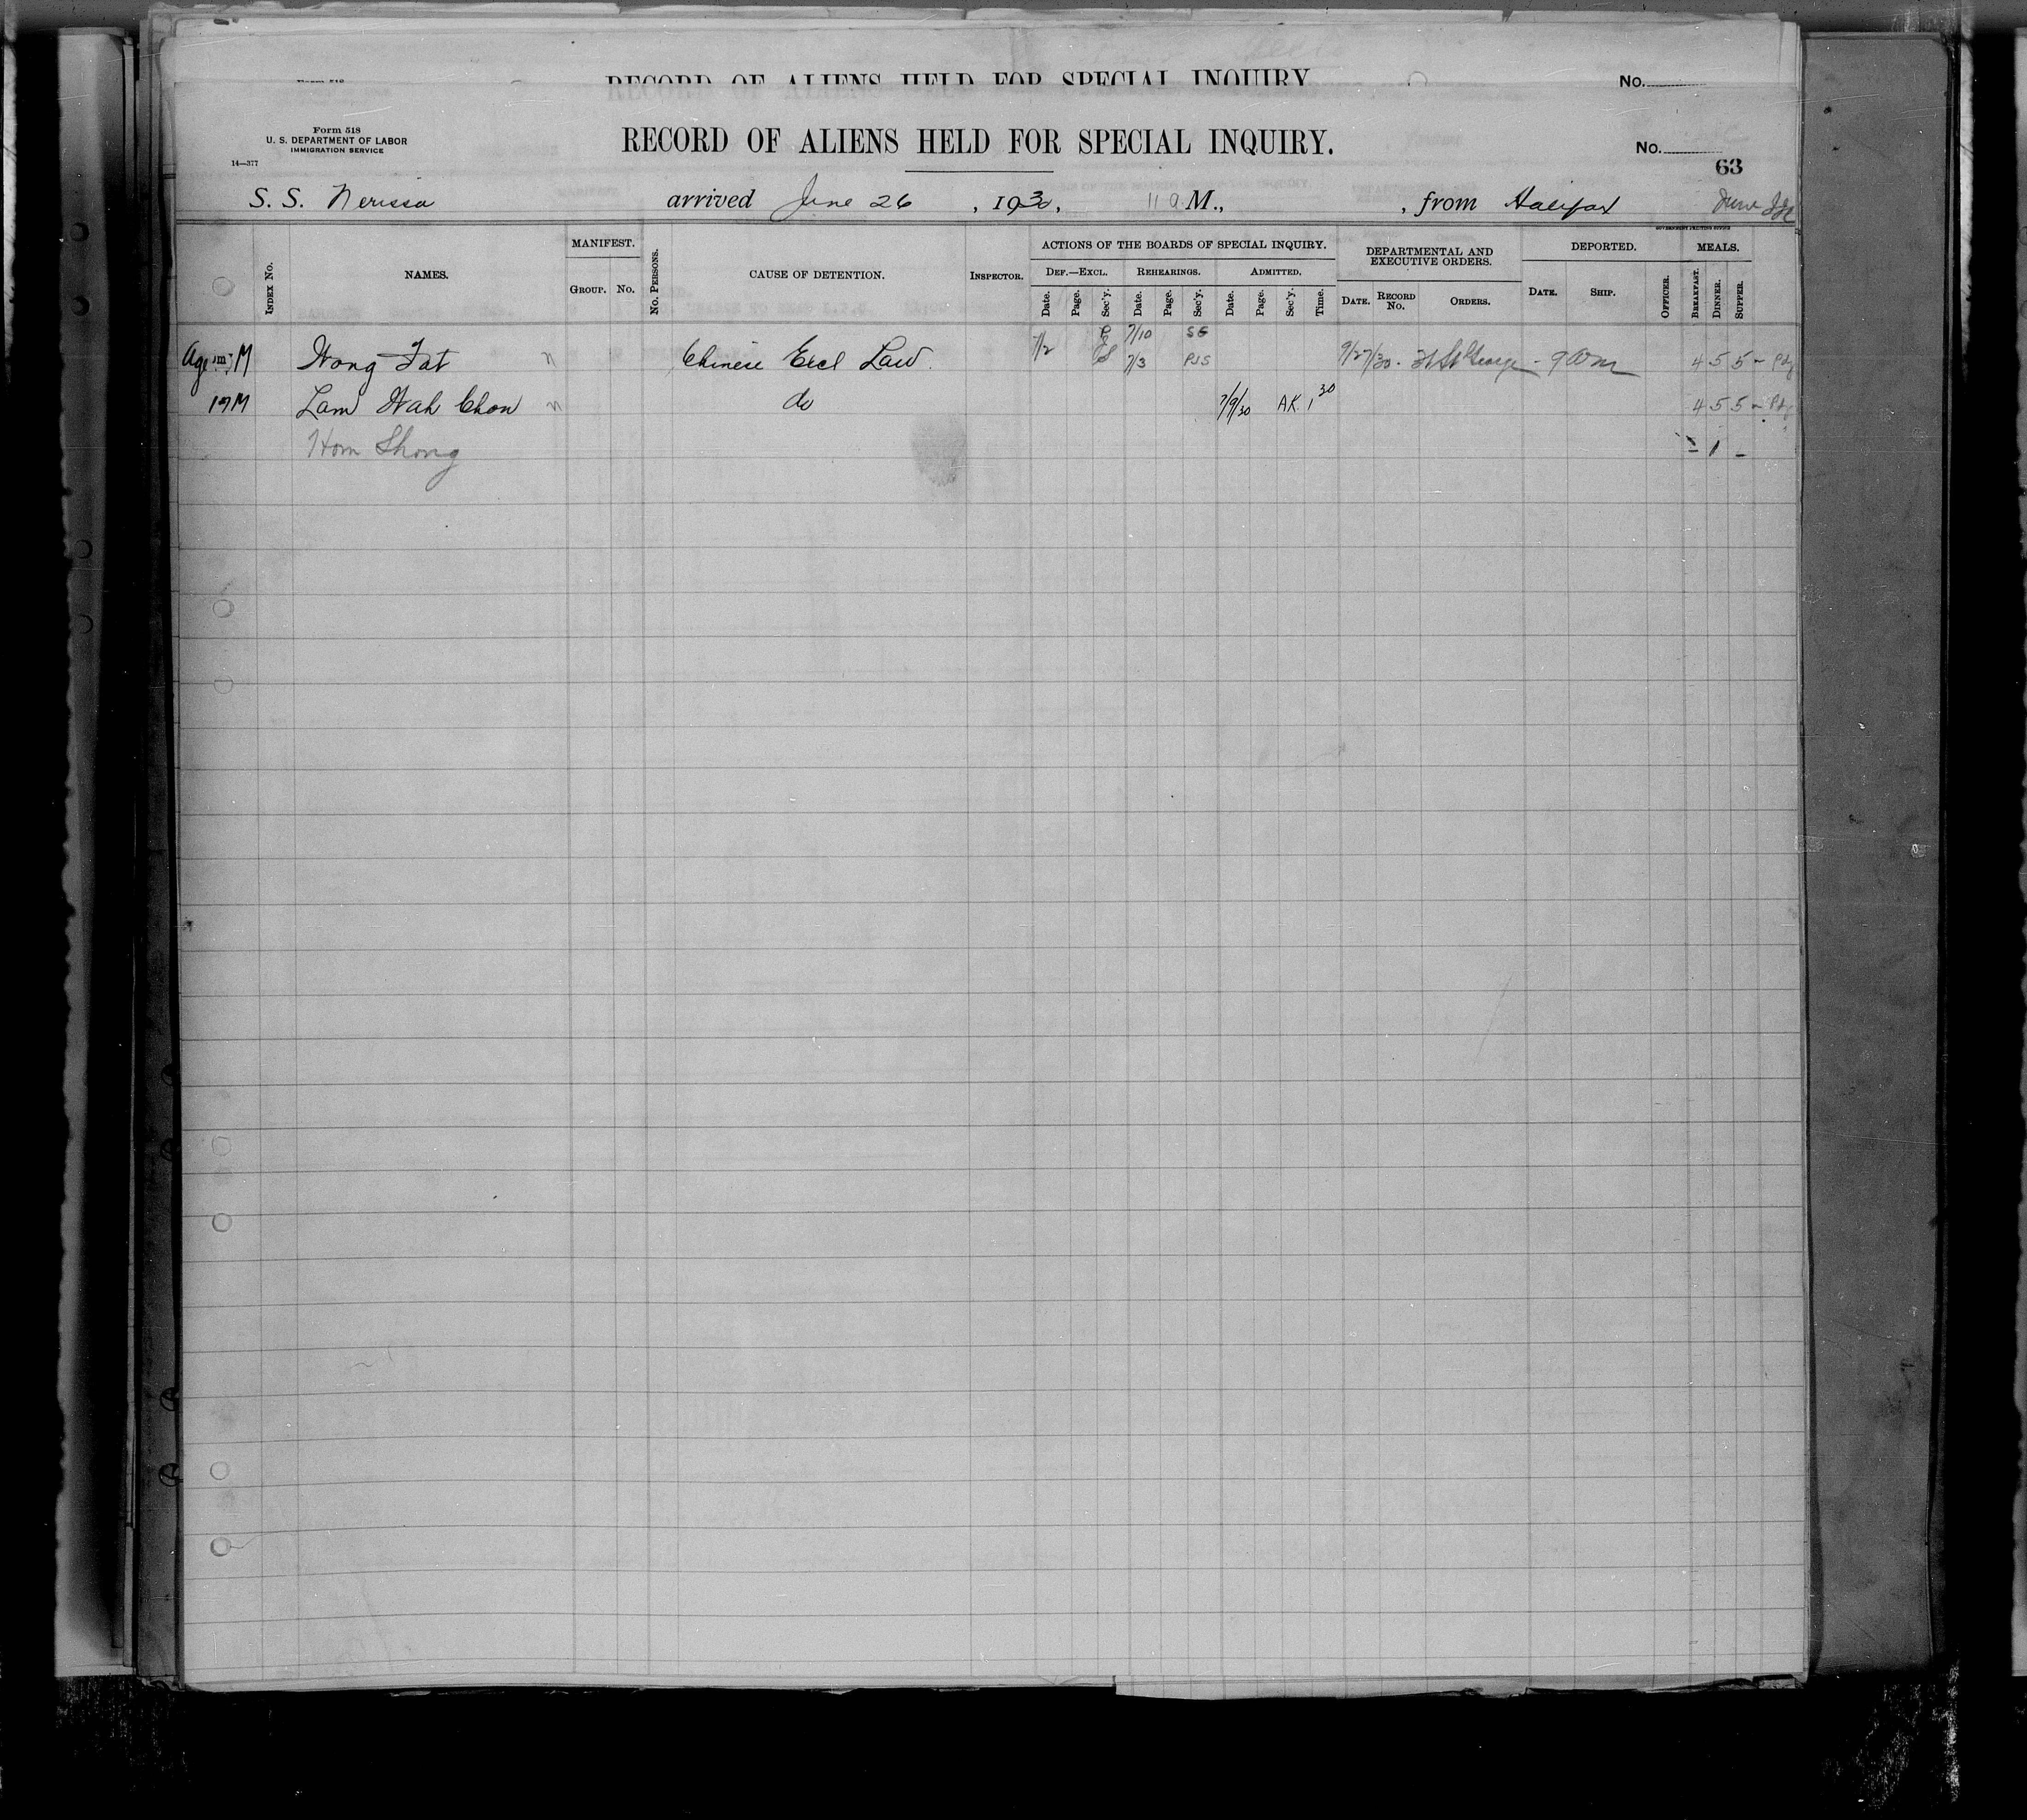 RECORD OF ALIENS HELD FOR SPECIAL INQUIRY No.
Form 518
U. S. DEPARTMENT OF LABOR
IMMIGRATION SERVICE
14—377
RECORD OF ALIENS HELD FOR SPECIAL INQUIRY.
No.
63
S. S. Nerissa arrived June 26, 1930, 11 a M., , from Halifax June
GOVERNMENT PRINTING OFFICE
INDEX No. NAMES. MANIFEST. GROUP. No. No. PERSONS. CAUSE OF DETENTION. INSPECTOR. ACTIONS OF THE BOARDS OF SPECIAL INQUIRY. DEPARTMENTAL AND EXECUTIVE ORDERS. DEPORTED. MEALS.
DEF.—EXCL. REHEARINGS. ADMITTED.
Date. Page. Sec'y. Date. Page. Sec'y. Date. Page. Sec'y. Time. DATE. RECORD No. ORDERS. DATE. SHIP. OFFICER. BREAKFAST. DINNER. SUPPER.
7/10 SG
Age M Wong Fat n Chinese Excl Law. 7/2 7/3 PJS 9/27/30 - Ft St George - 9 am 4 5 5 -
19 M Lam Wah Chon n do 7/9/30 AK. 1 30 4 5 5 -
Hom Shong - 1 -